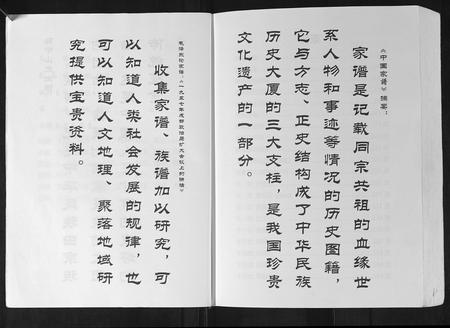 《中国家谱》摘要：
家谱是记载同宗共祖的血缘世
系人物和事迹等情况的历史图籍，
它与方志、正史结构成了中华民族
历史大厦的三大支柱，是我国珍贵
文化遗产的一部分。
毛泽东论家谱：《一九五七年成都政治局扩大会议上的讲话》
收集家谱、族谱加以研究，可
以知道人类社会发展的规律，也
可以知道人文地理、聚落地域研
究提供宝贵资料。